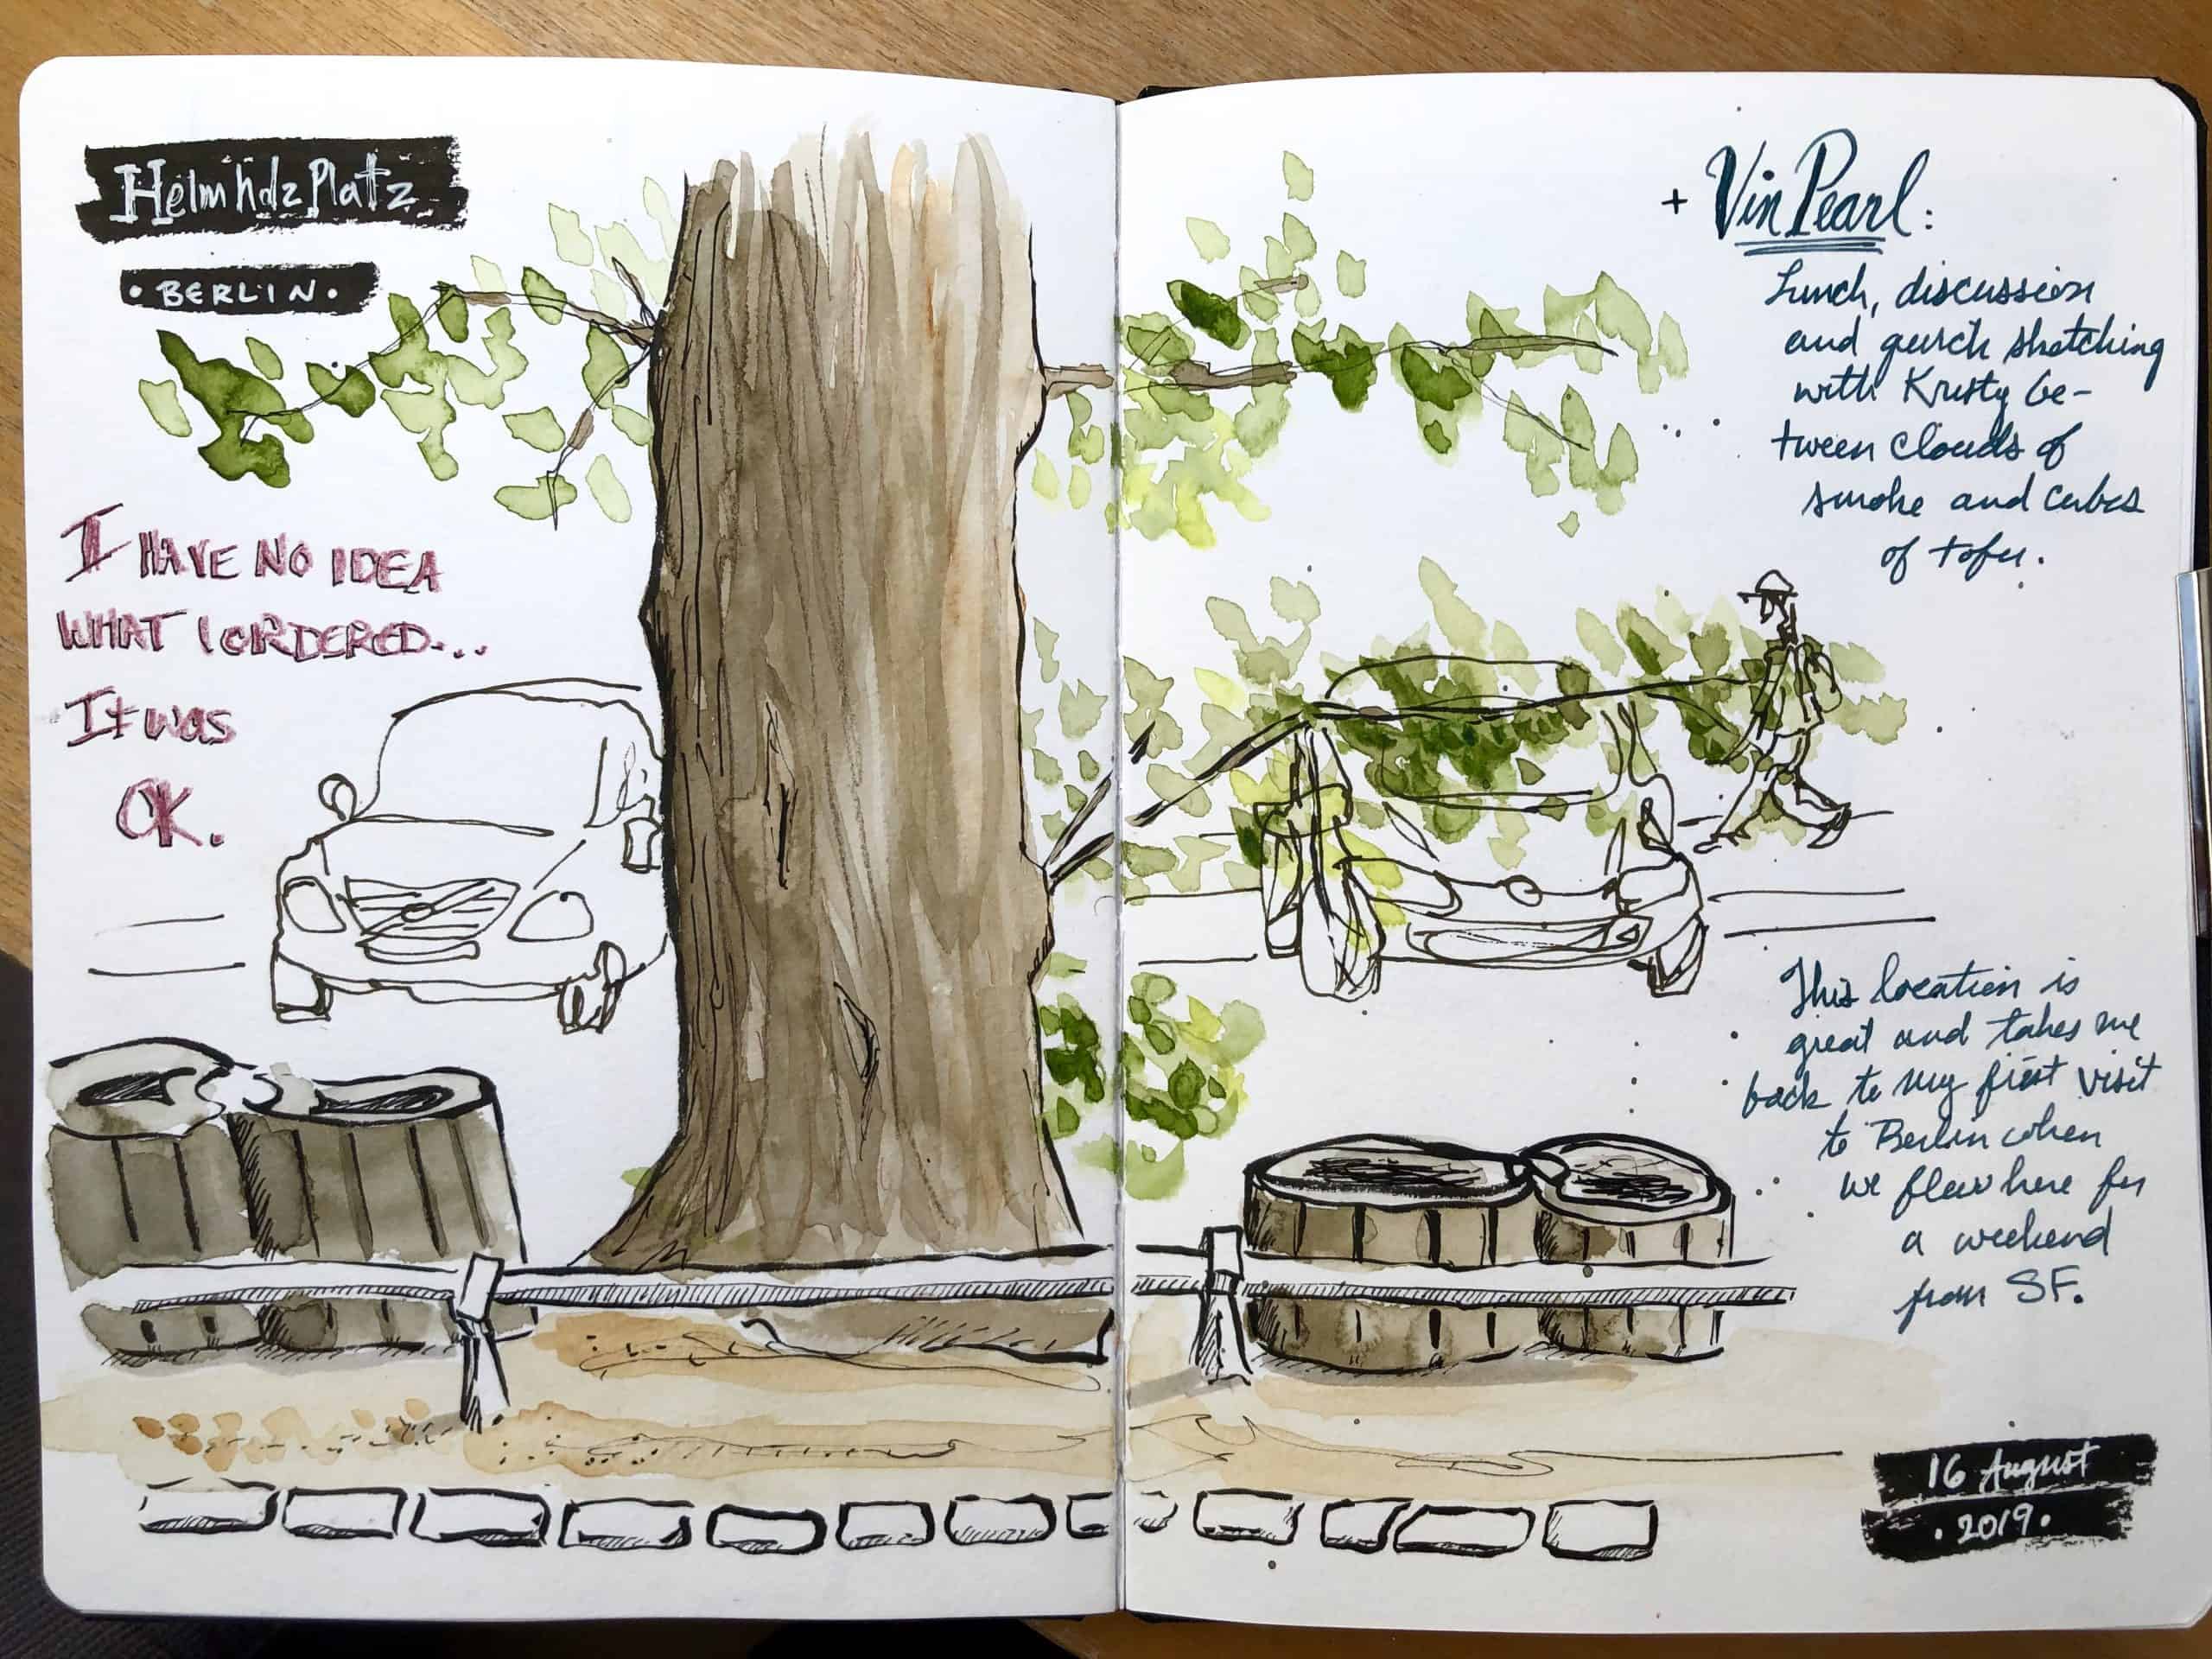 Helmholz Platz
• BERLIN •
I HAVE NO IDEA
WHAT I ORDERED...
It was
OK.
+ Vin Pearl:
Lunch, discussion
and quick sketching
with Kristy be-
tween clouds of
smoke and cubes
of tofu.
This location is
great and takes me
back to my first visit
to Berlin when
we flew here for
a weekend
from SF.
16 August
• 2019 •